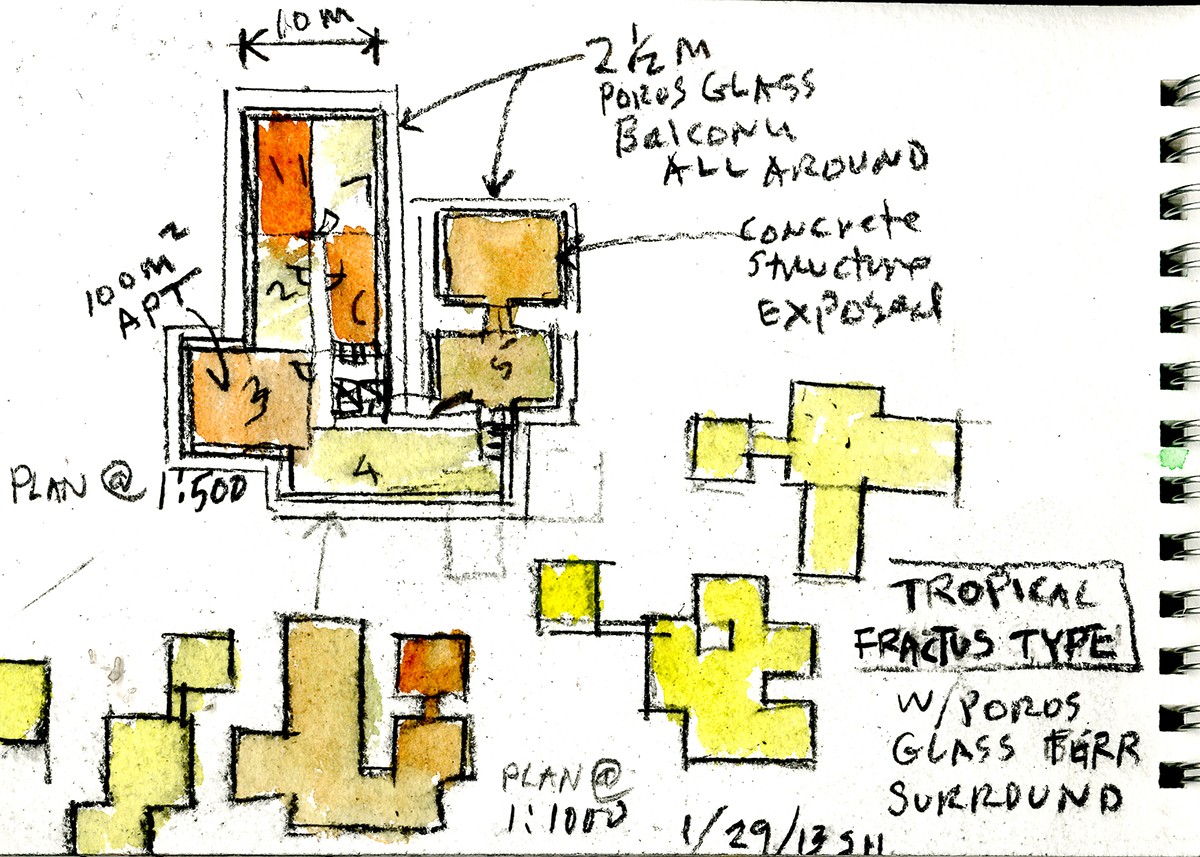 10 M
2 ½ M
POROS GLASS
BALCONU
ALL AROUND
CONCRETE
STRUCTURE
EXPOSED
100 M²
APT
1
2
1
3
5
4
PLAN @ 1:500
TROPICAL
FRACTUS TYPE
W/POROS
GLASS TERR
SURROUND
PLAN @
1:1000
1/29/13 SH